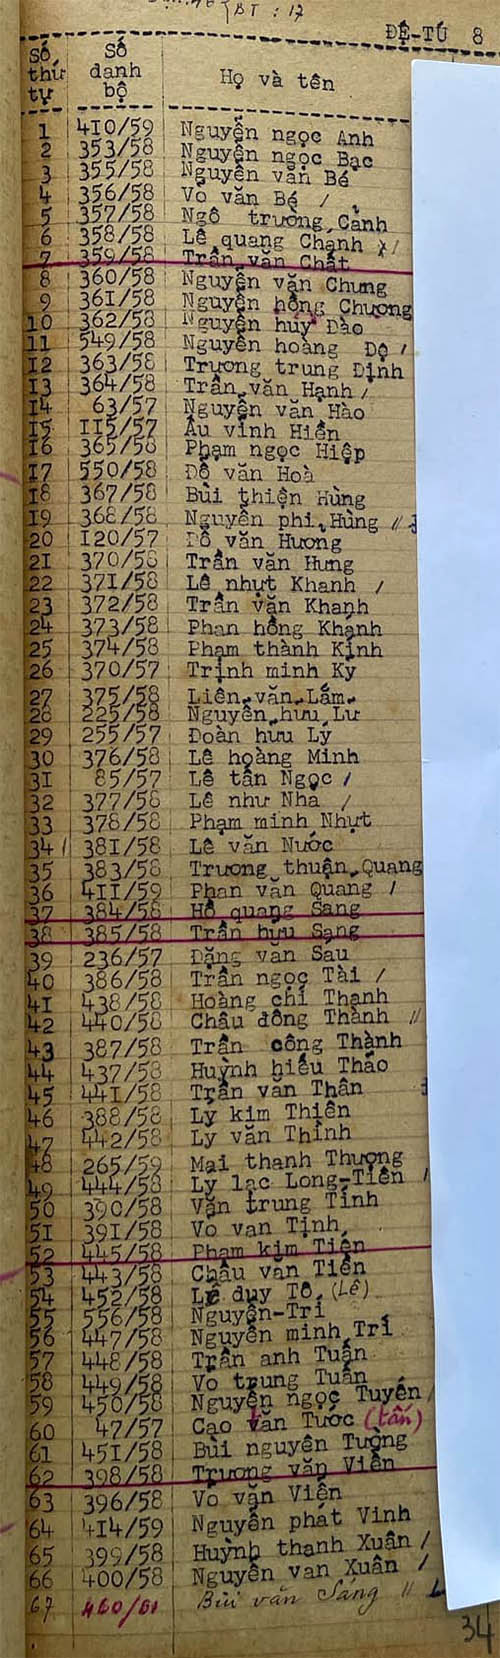 BT : 17
ĐỆ-TỨ 8
Số thứ tự | Số danh bộ | Họ và tên
1 410/59 Nguyễn ngọc Anh
2 353/58 Nguyễn ngọc Bạc
3 355/58 Nguyễn văn Bé
4 356/58 Võ văn Bé /
5 357/58 Ngô trường Cảnh
6 358/58 Lê quang Chạnh x/
7 359/58 Trần văn Chất
8 360/58 Nguyễn văn Chung
9 361/58 Nguyễn hồng Chương
10 362/58 Nguyễn huy Đào
11 549/58 Nguyễn hoàng Đệ /
12 363/58 Trương trung Định
13 364/58 Trần văn Hạnh /
14 63/57 Nguyễn văn Hào
15 115/57 Âu vĩnh Hiển
16 365/58 Phạm ngọc Hiệp
17 550/58 Đỗ văn Hoà
18 367/58 Bùi thiện Hùng
19 368/58 Nguyễn phi Hùng //
20 120/57 Đỗ văn Hương
21 370/58 Trần văn Hưng
22 371/58 Lê nhựt Khanh /
23 372/58 Trần văn Khanh
24 373/58 Phan hồng Khánh
25 374/58 Phạm thành Kỉnh
26 370/57 Trịnh minh Ky
27 375/58 Liên văn Lắm
28 225/58 Nguyễn hưu Lư
29 255/57 Đoàn hưu Lý
30 376/58 Lê hoàng Minh
31 85/57 Lê tấn Ngọc /
32 377/58 Lê như Nha /
33 378/58 Phạm minh Nhựt
34 / 381/58 Lê văn Nước
35 383/58 Trương thuận Quang
36 411/59 Phan văn Quang /
37 384/58 Hồ quang Sang
38 385/58 Trần hữu Sang
39 236/57 Đặng van Sau
40 386/58 Trần ngọc Tài /
41 438/58 Hoàng chí Thanh
42 440/58 Châu đông Thành //
43 387/58 Trần công Thành
44 437/58 Huỳnh hiếu Thảo
45 441/58 Trần văn Thân
46 388/58 Lý kim Thiên
47 442/58 Lý văn Thình
48 265/59 Mai thanh Thượng
49 444/58 Lý lạc Long-Tiên /
50 390/58 Văn trung Tính
51 391/58 Vo van Tịnh
52 445/58 Phạm kim Tiền
53 443/58 Châu văn Tiến
54 452/58 Lê duy Tô (Lê)
55 556/58 Nguyễn-Tri
56 447/58 Nguyễn minh Trí
57 448/58 Trần anh Tuấn
58 449/58 Vo trung Tuấn
59 450/58 Nguyễn ngọc Tuyển /
60 47/57 Cao văn Tước (tấn)
61 451/58 Bùi nguyên Tường
62 398/58 Trương văn Viễn
63 396/58 Vo văn Viện
64 414/59 Nguyễn phát Vinh
65 399/58 Huỳnh thanh Xuân /
66 400/58 Nguyễn van Xuân /
67 460/61 Bùi văn Sáng //
34